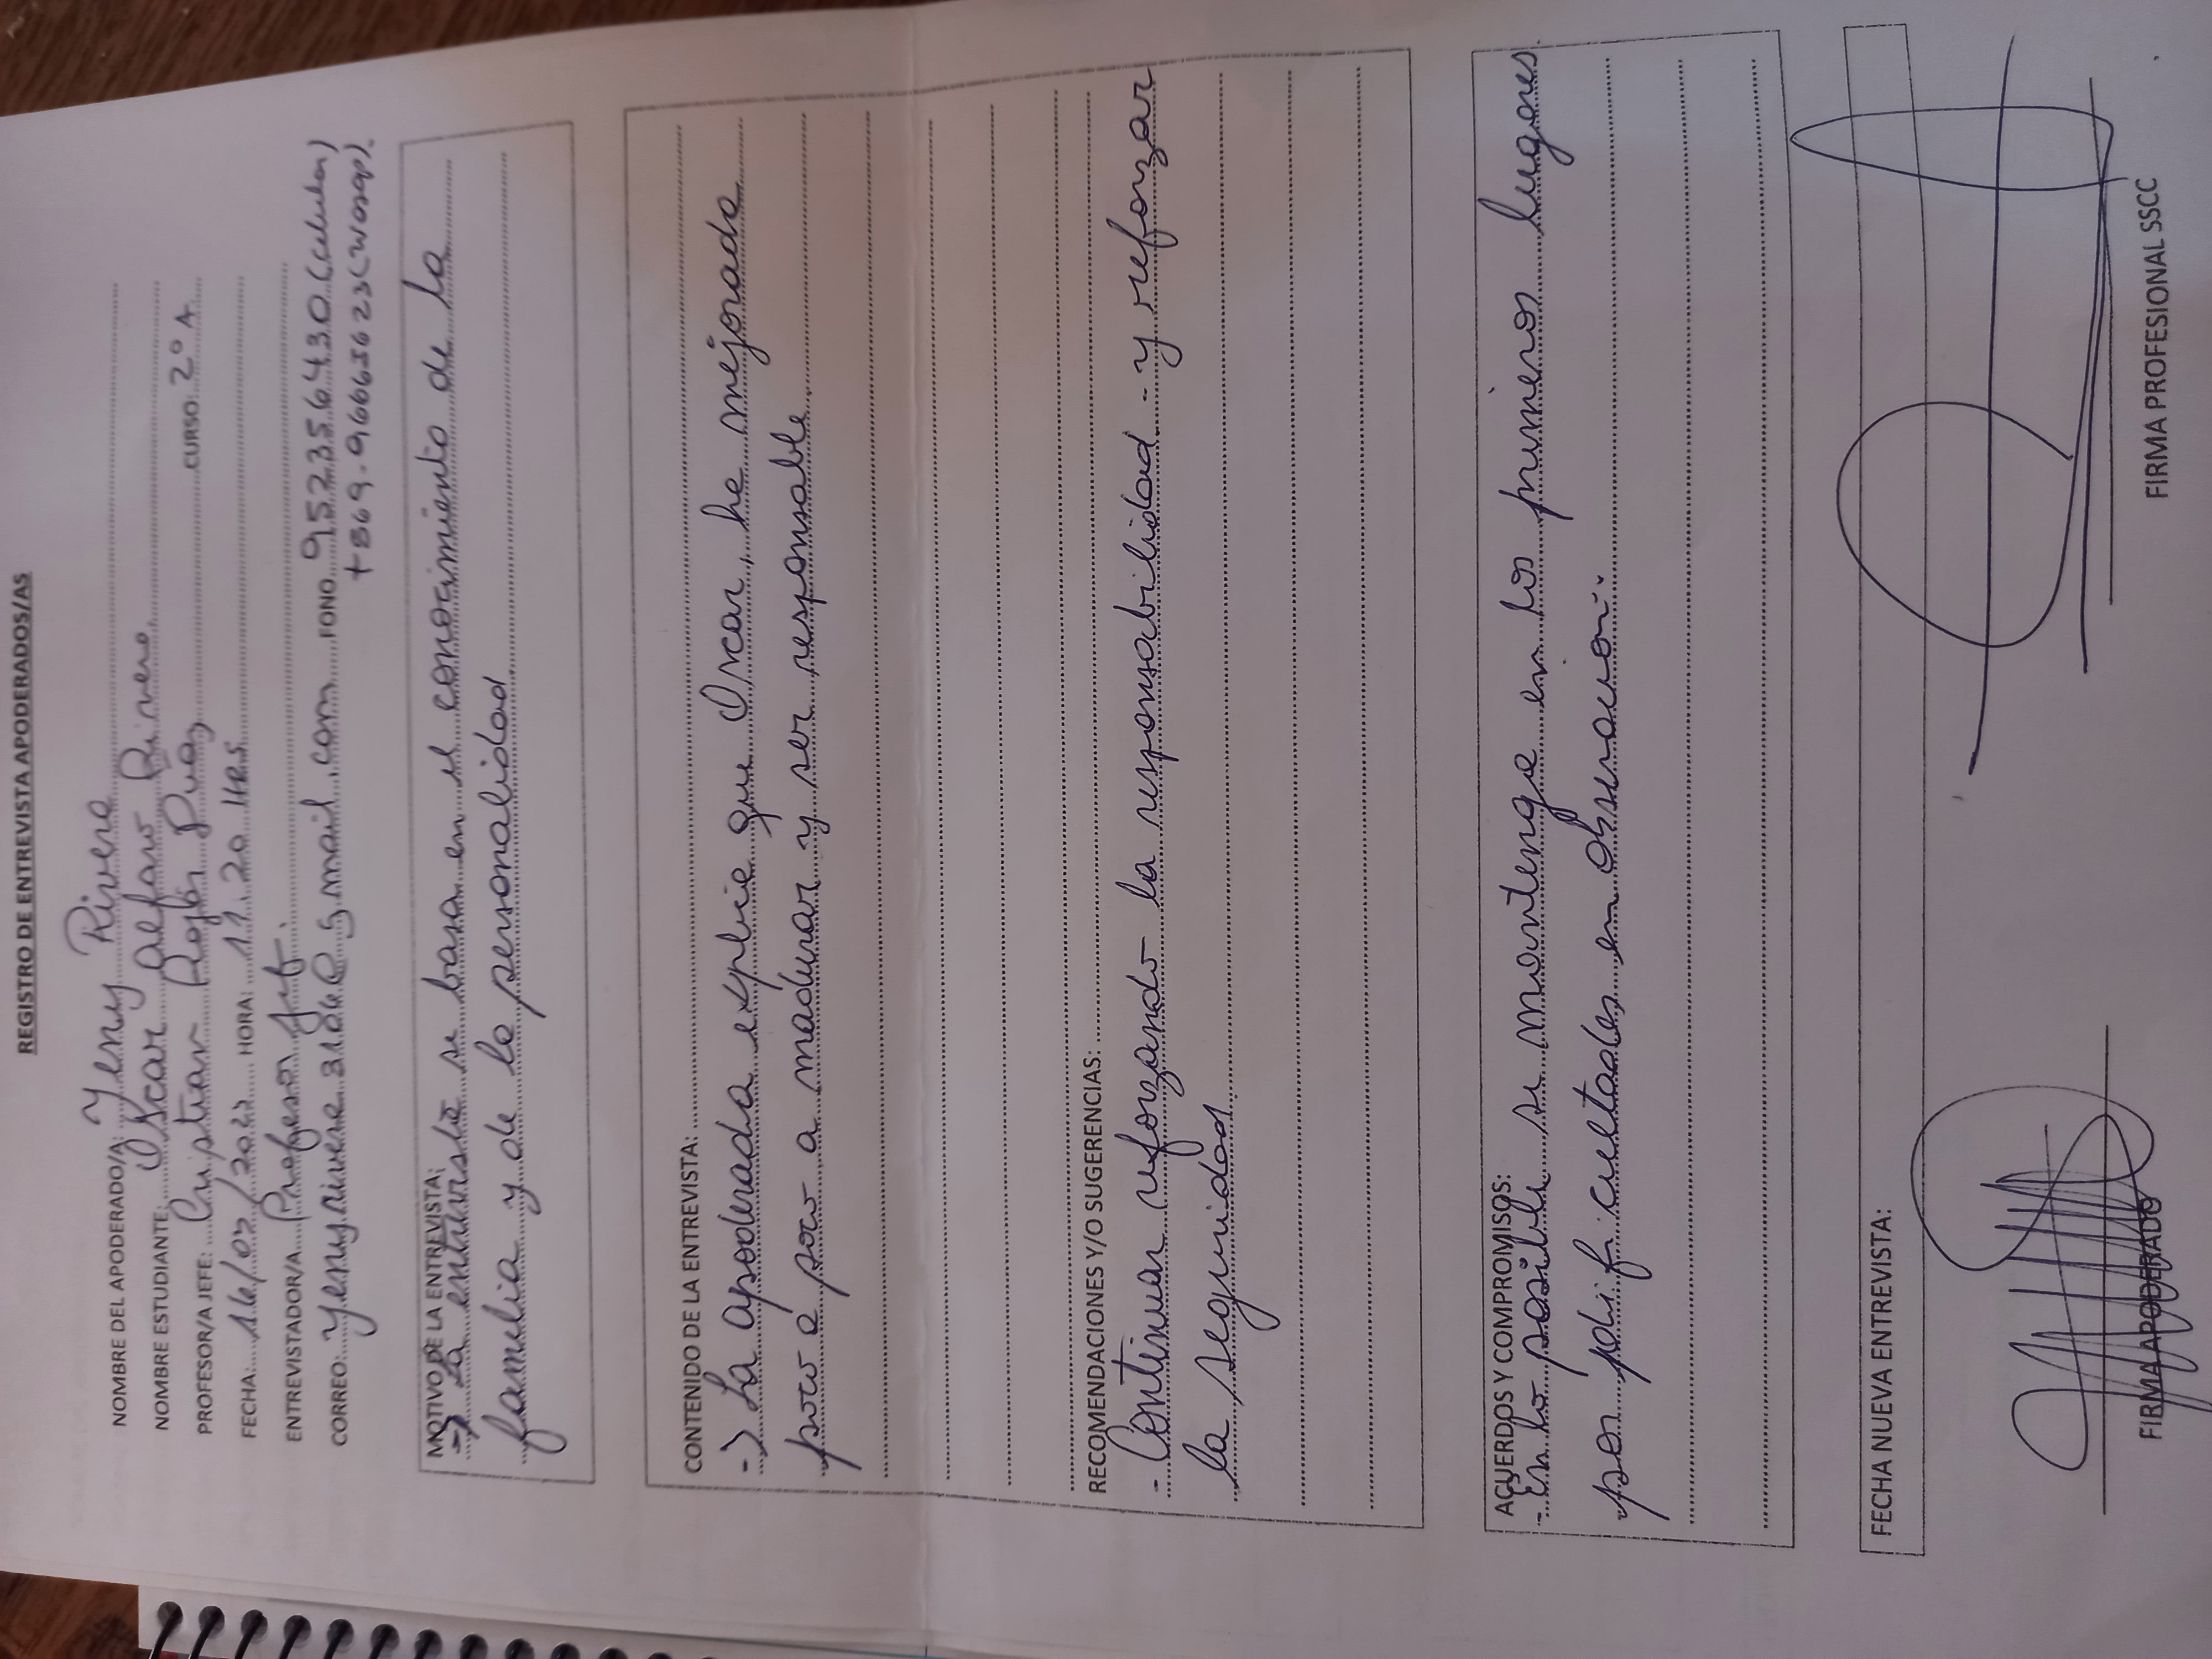 REGISTRO DE ENTREVISTA APODERADOS/AS
NOMBRE DEL APODERADO/A: Yeny Rivera
NOMBRE ESTUDIANTE: Oscar Alfaro Rivera
PROFESOR/A JEFE: Cristian CURSO: 2° A
FECHA: HORA: 11:20 HRS
ENTREVISTADOR/A Profesor Jefe.
CORREO: FONO 952356430 (celular)
(Wasap).
MOTIVO DE LA ENTREVISTA:
-> La entrevista se basa en el conocimiento de la
familia y de la personalidad
CONTENIDO DE LA ENTREVISTA:
-> La apoderada explica que Oscar, ha mejorado
poco a poco a madurar y ser responsable
RECOMENDACIONES Y/O SUGERENCIAS:
- Continuar reforzando la responsabilidad - y reforzar
la seguridad
ACUERDOS Y COMPROMISOS:
- En lo posible se mantenga en los primeros lugares
por dificultades en observación.
FECHA NUEVA ENTREVISTA:
FIRMA APODERADO
FIRMA PROFESIONAL SSCC